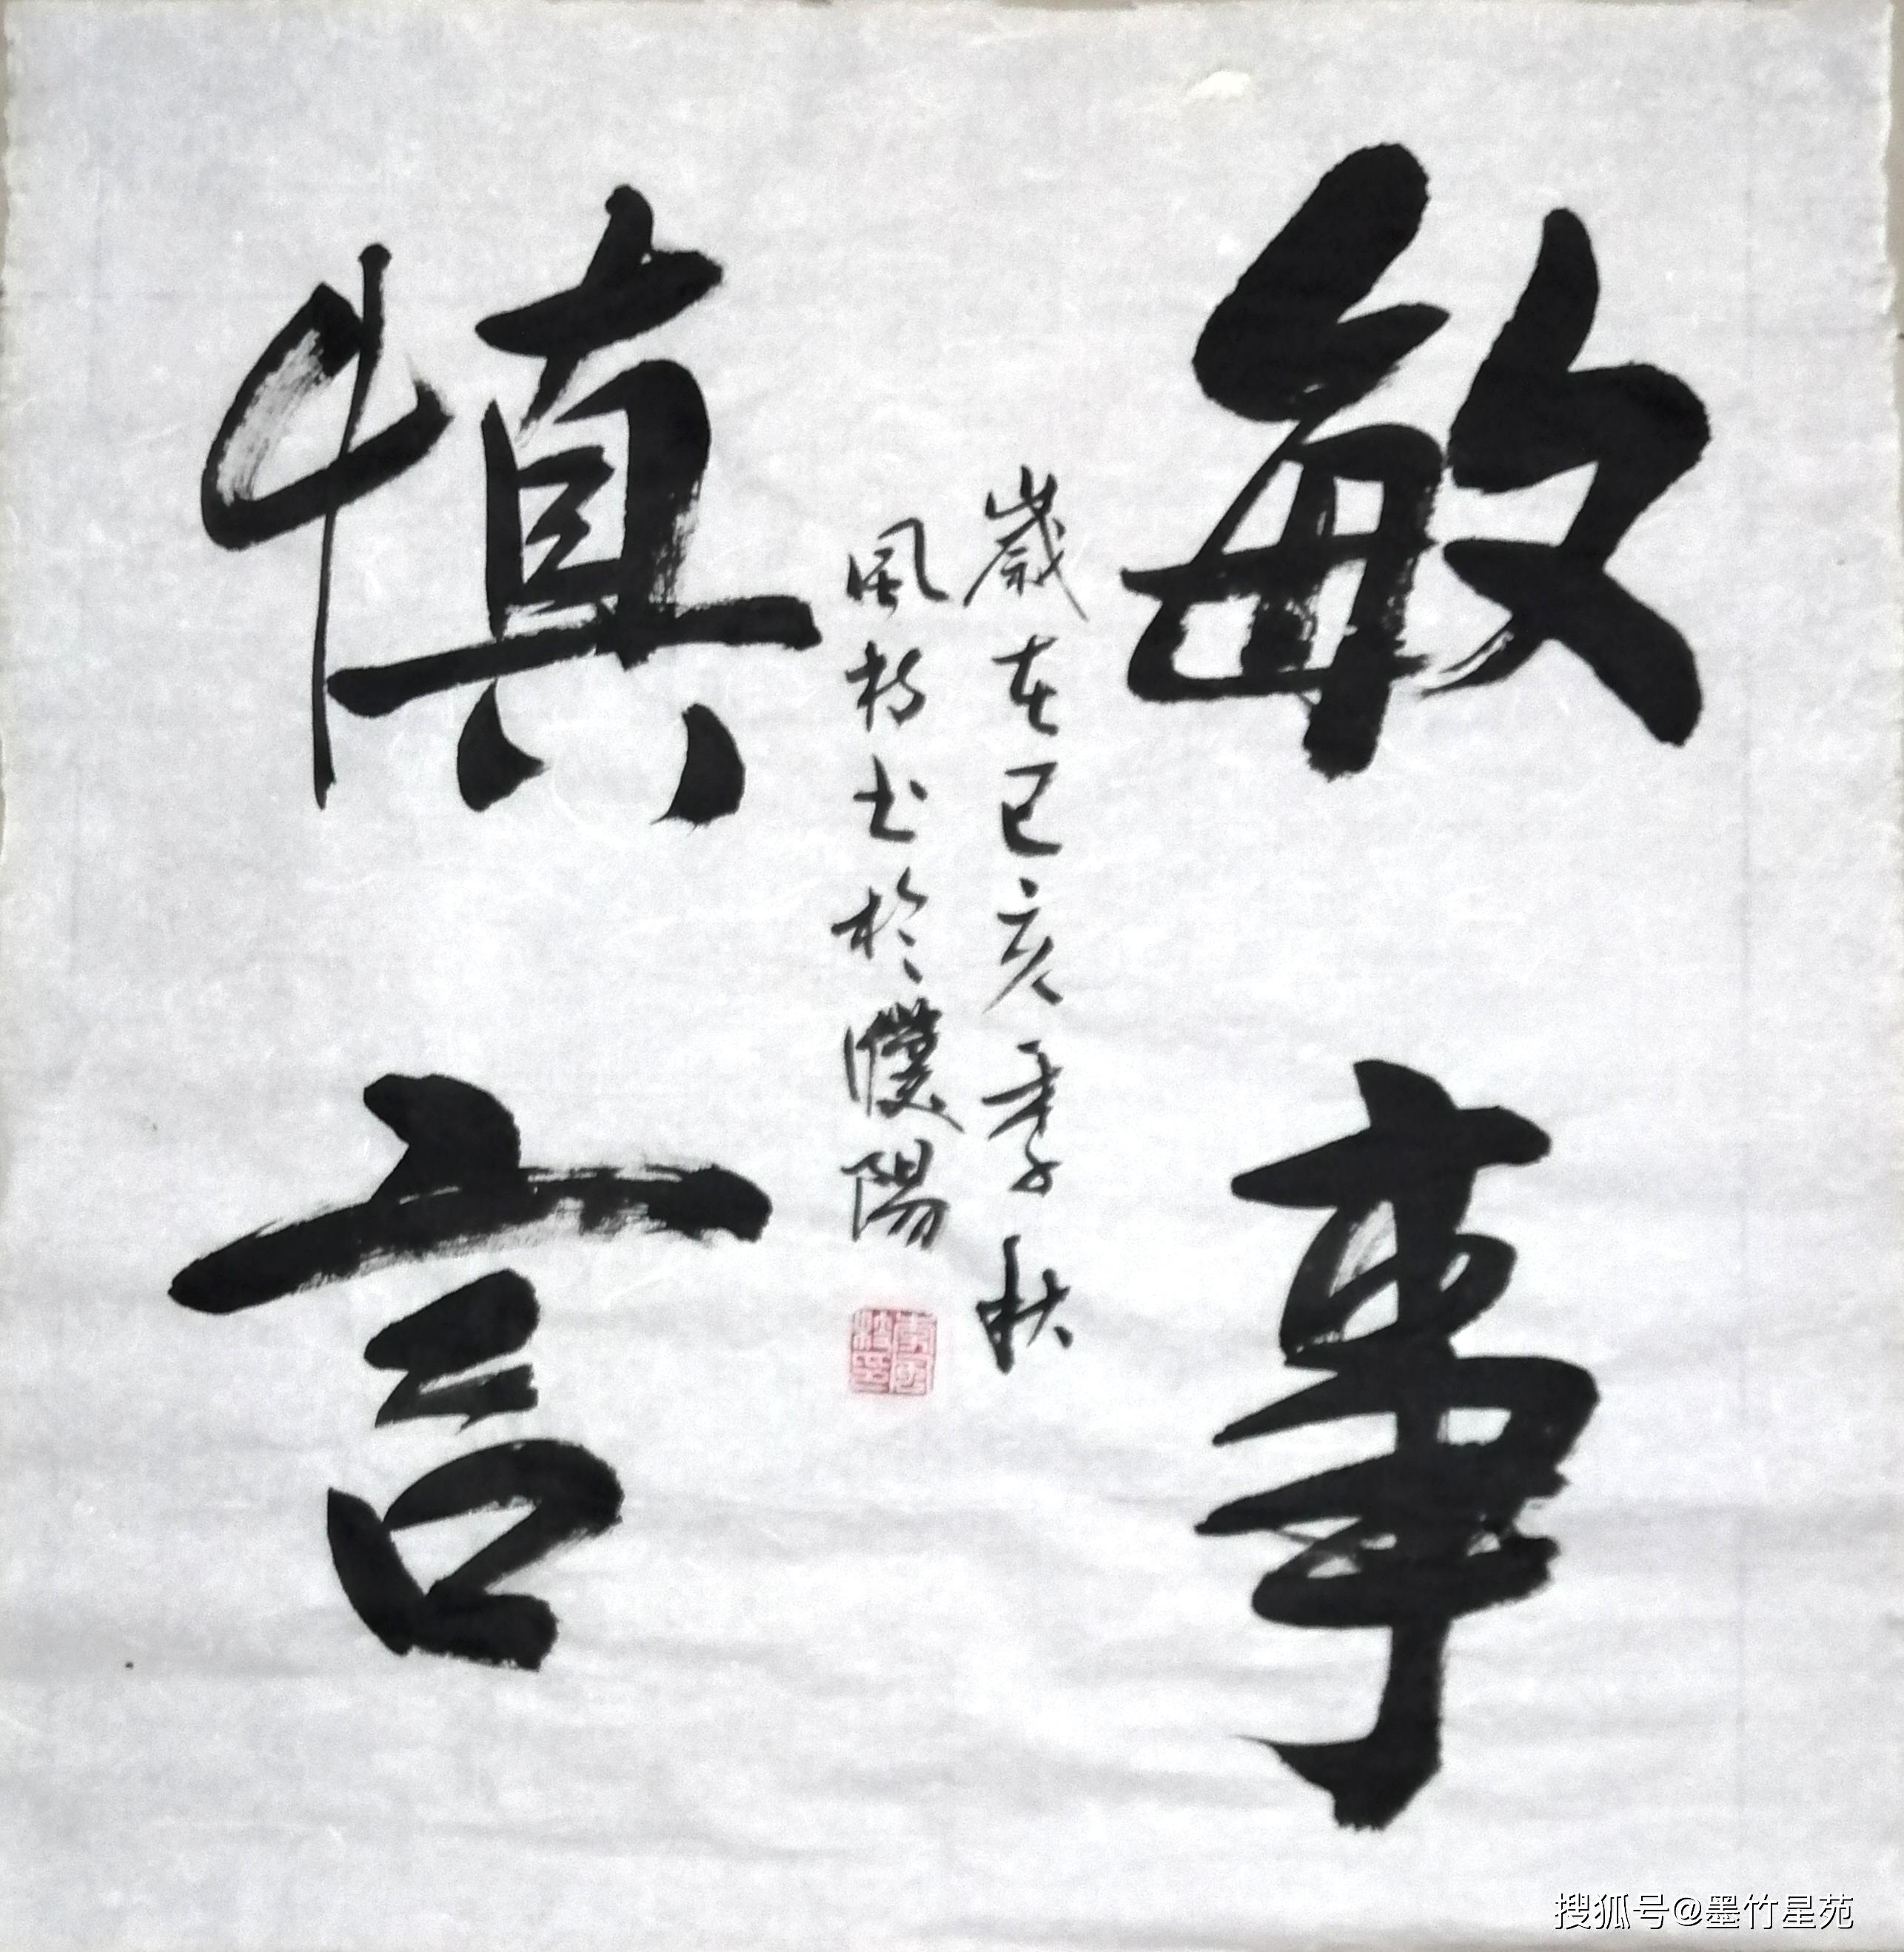 敏事
慎言
歲在己亥季秋
風林書於濮陽
搜狐号@墨竹星苑